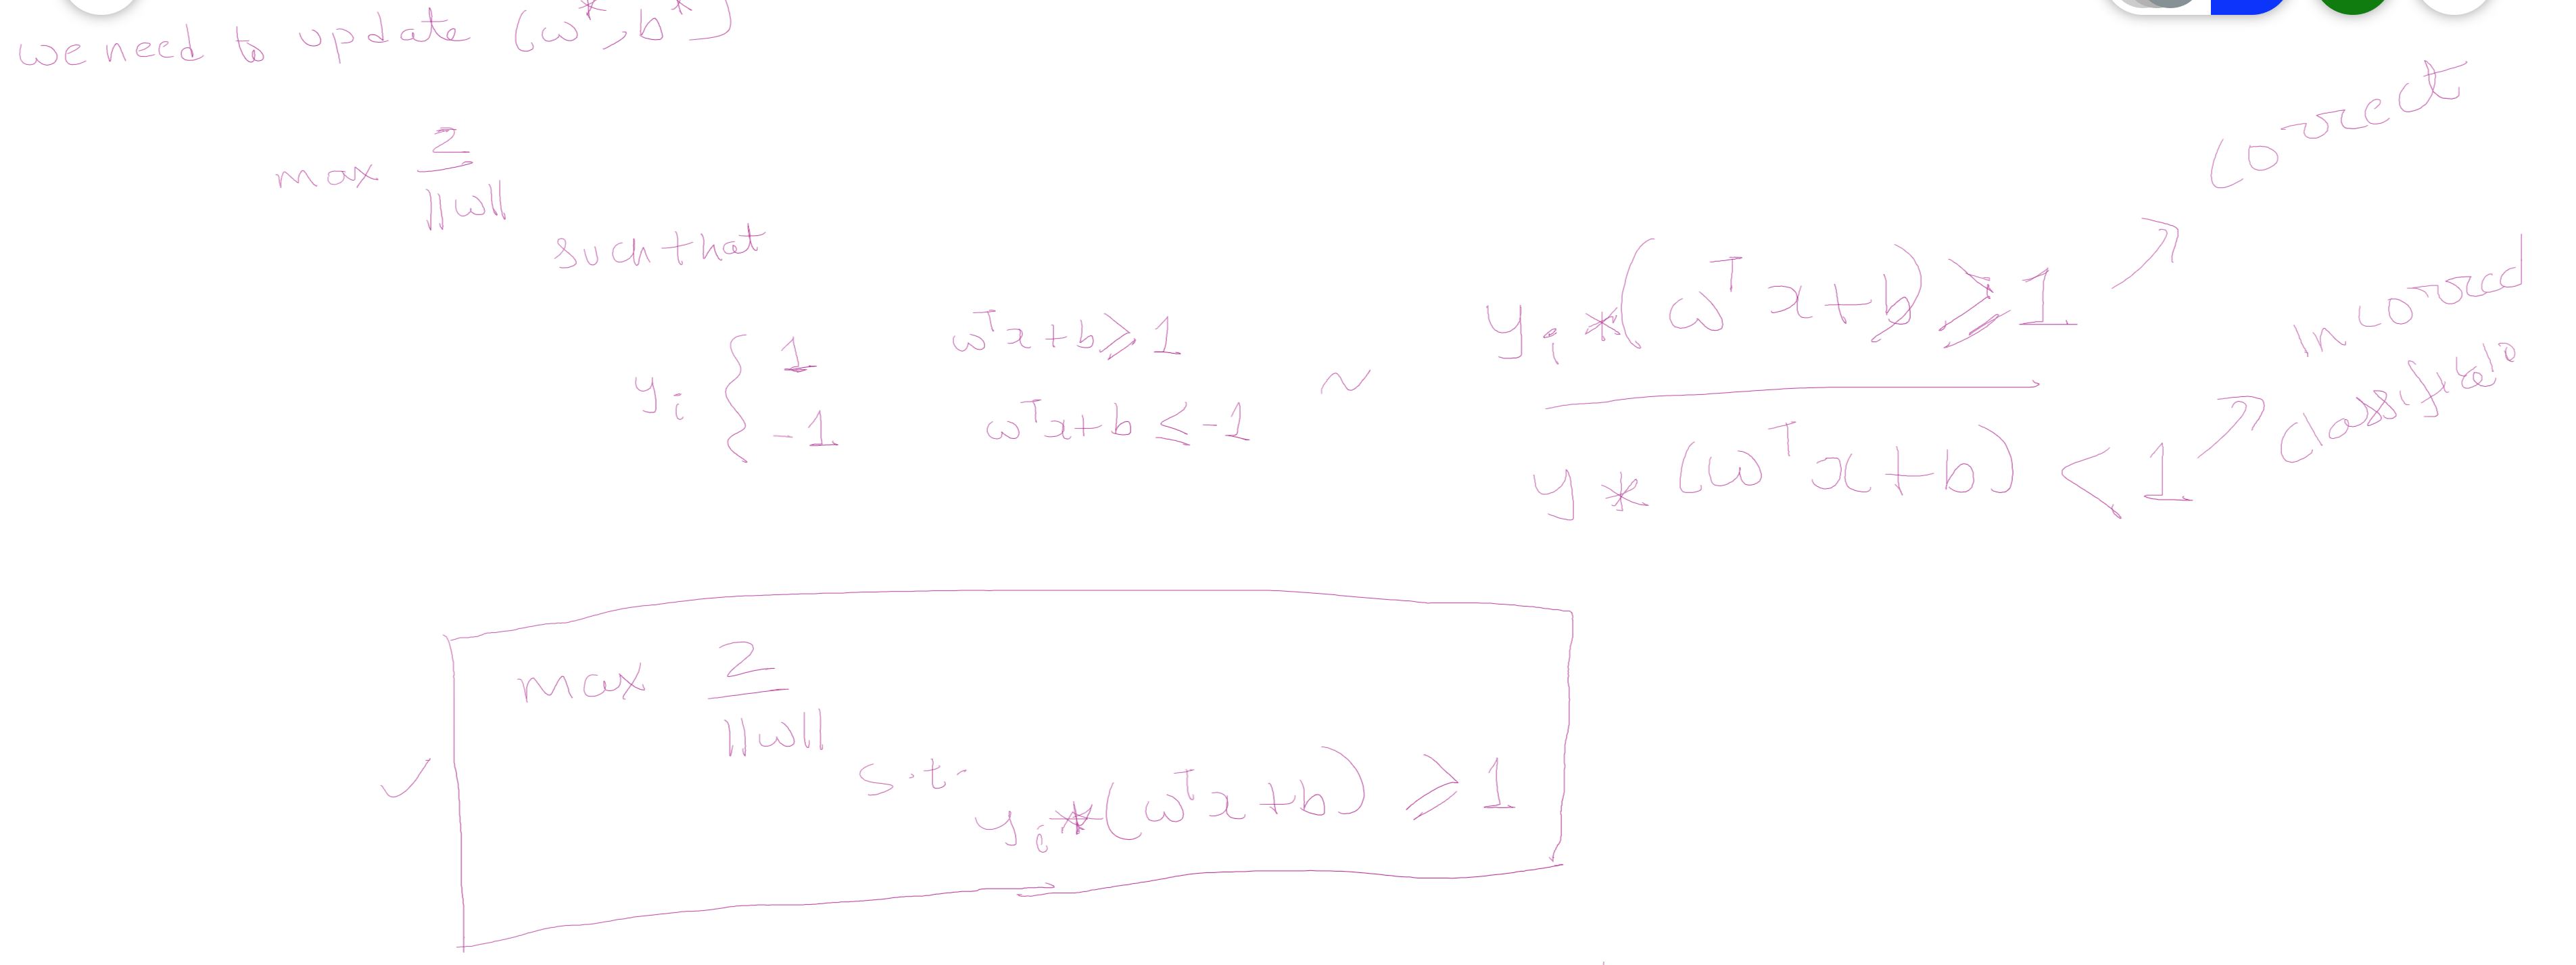 we need to update (ω*, b*)
max 2/||ω||
such that
y_i { 1 ω^T x + b ⩾ 1
-1 ω^T x + b ≤ -1
~
y_i * (ω^T x + b) ⩾ 1 → correct
y * (ω^T x + b) < 1 → Incorrect
max 2/||ω||
s.t.
y_i * (ω^T x + b) ⩾ 1